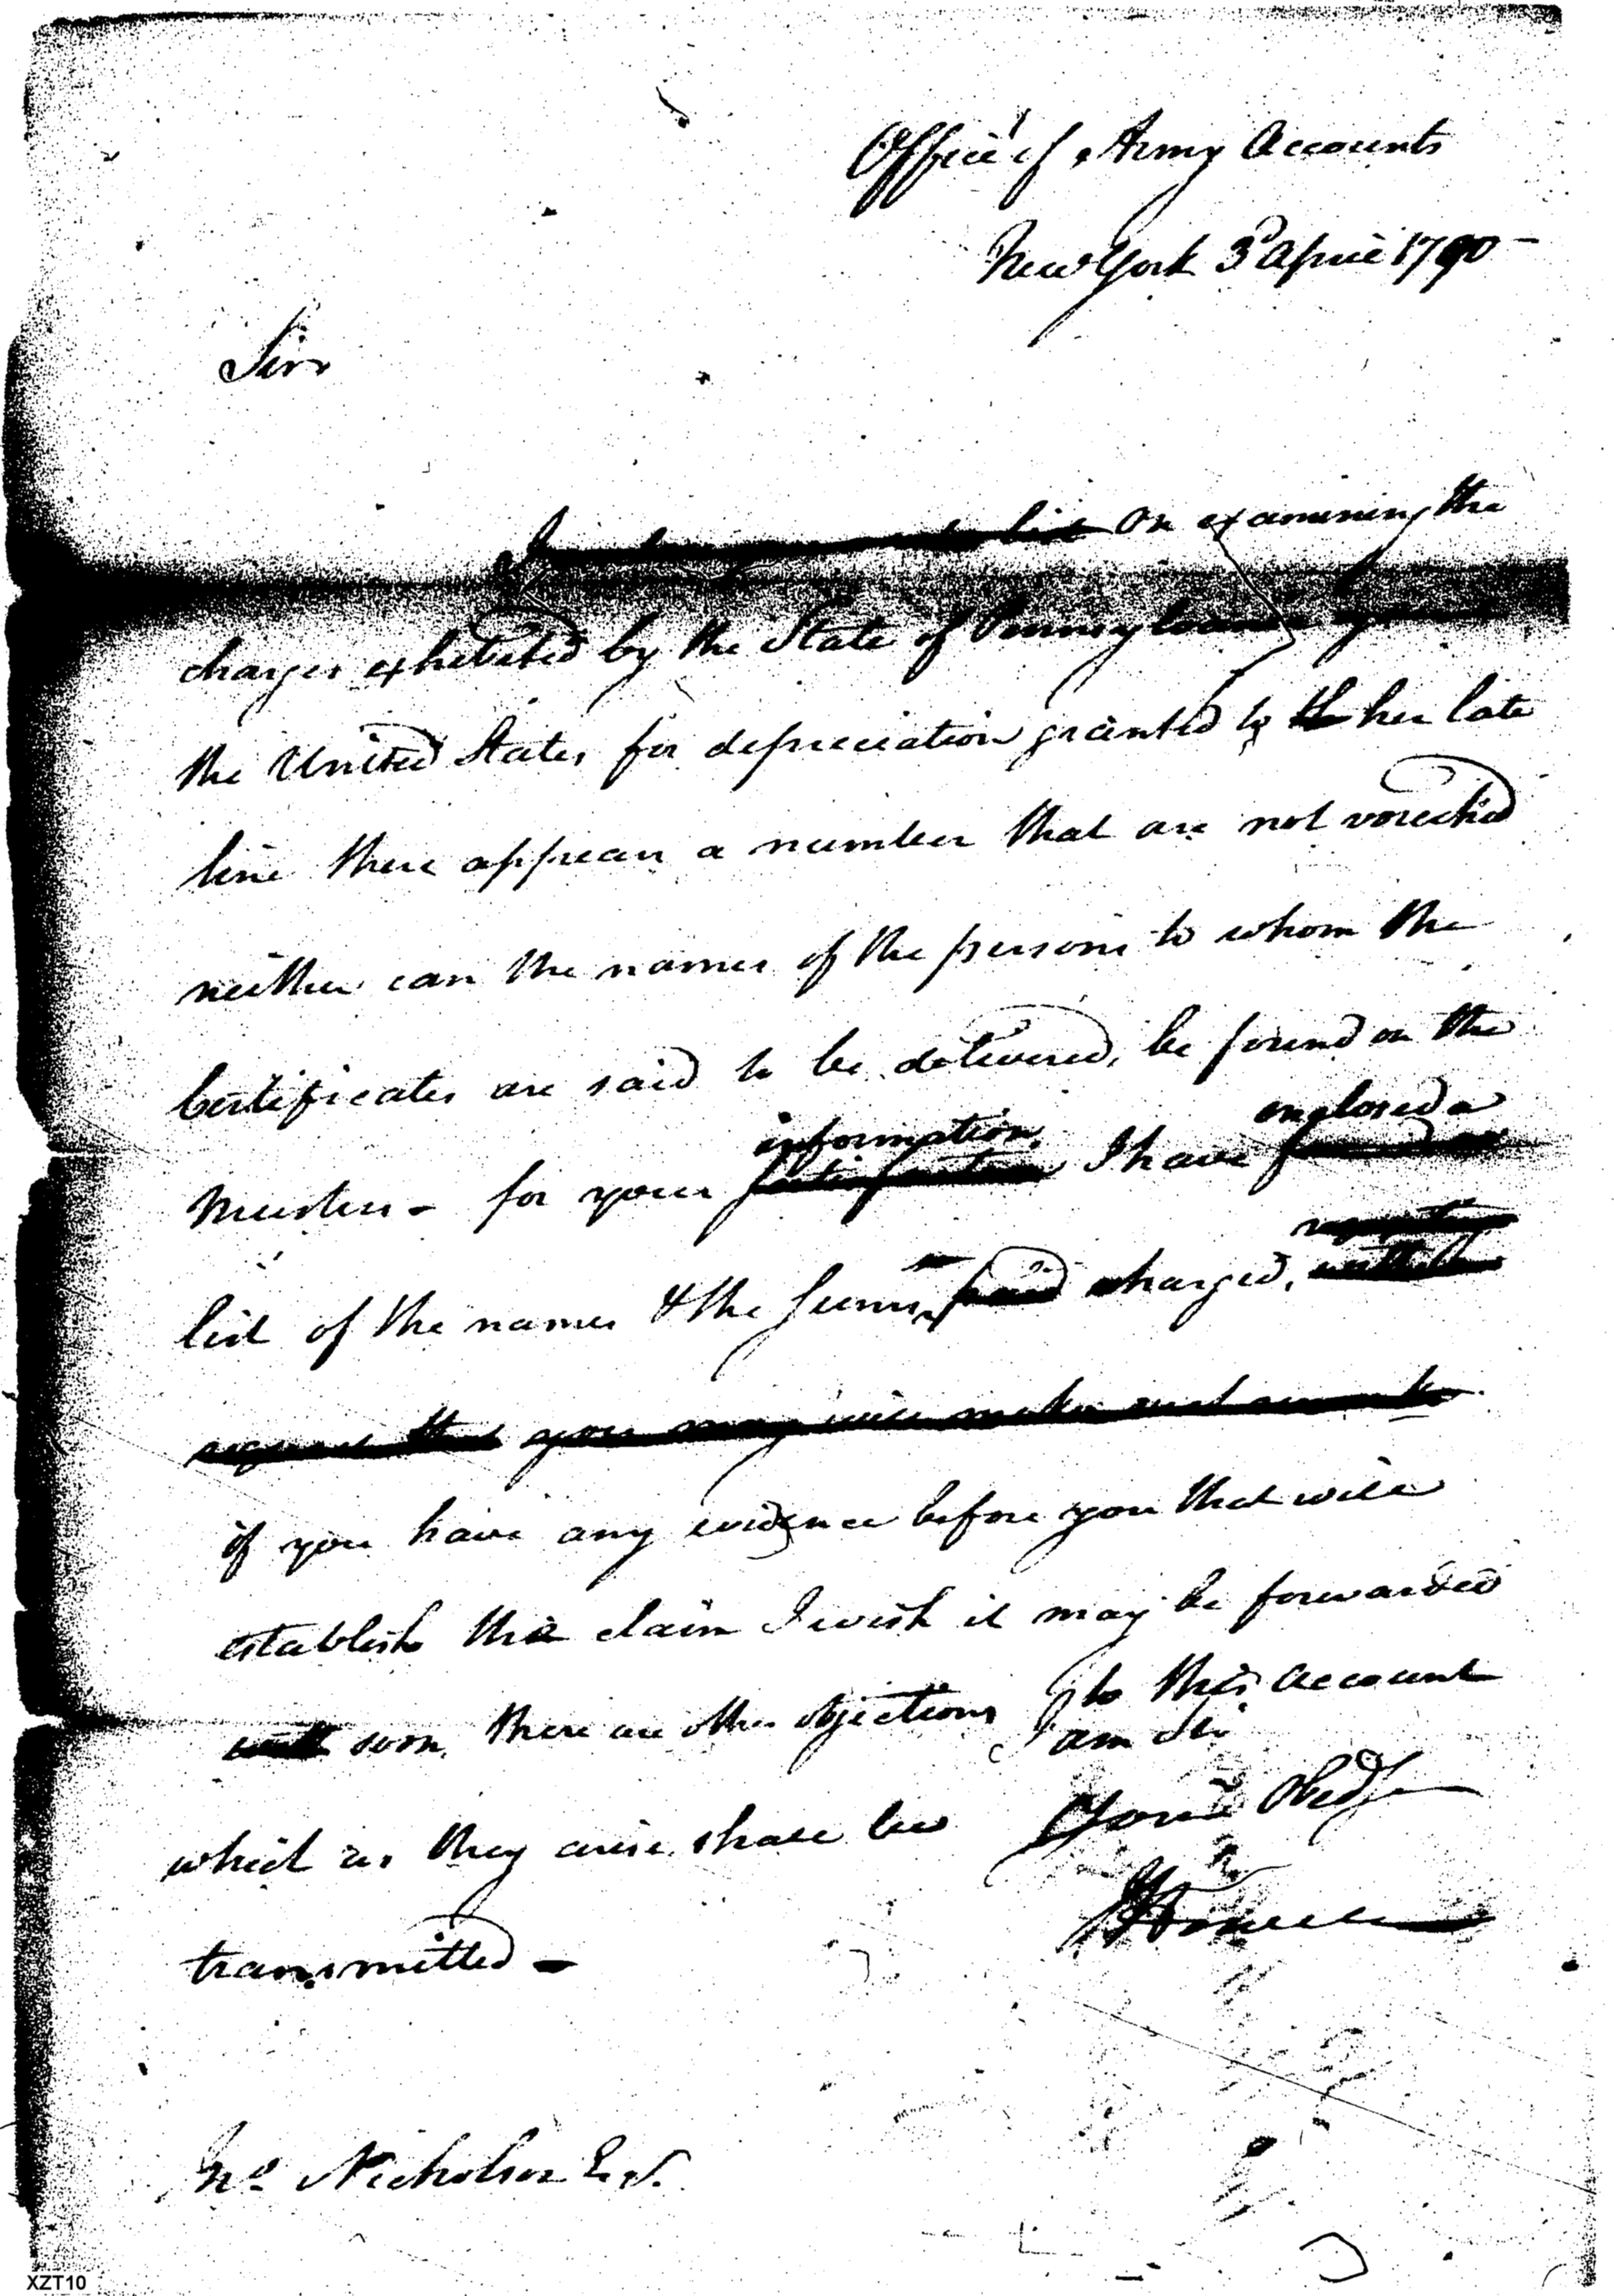 Office of Army Accounts
New York 3d April 1790
Sir
On examining the
charges exhibited by the State of Pennsylvania against
the United States for depreciation granted to her late
line there appears a number that are not vouched
neither can the names of the persons to whom the
Certificates are said to be delivered, be found on the
Musters - for your information I have enclosed a
list of the names & the sums charged,
request that you may
if you have any evidence before you that will
establish the claim I wish it may be forwarded
soon, there are other objections to this account
which as they arise shall be
transmitted -
I am Sir
Your Obed
JHowell
Jno Nicholson Esqr.
XZT10